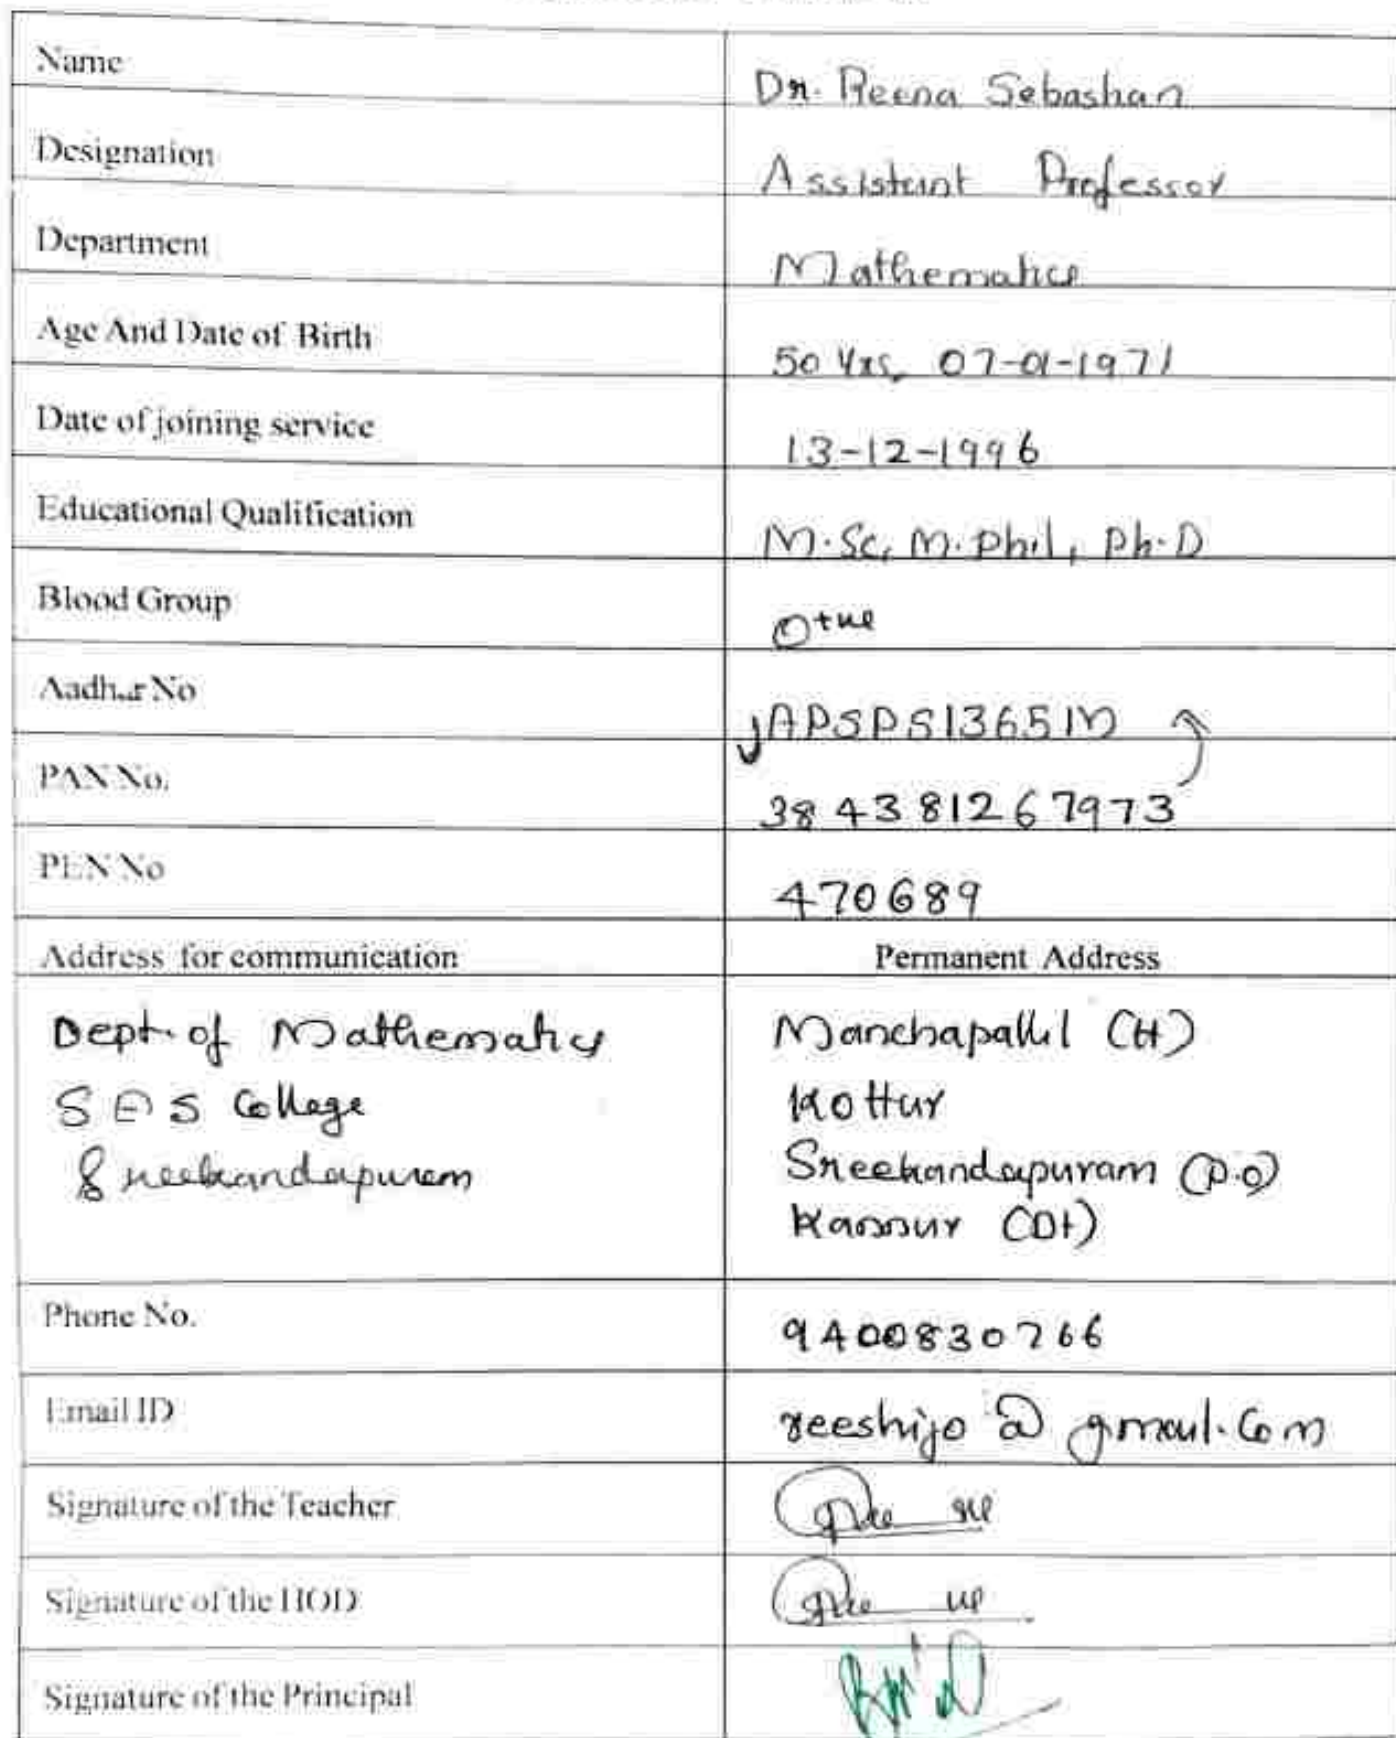 Name Dr. Reena Sebastian
Designation Assistant Professor
Department Mathematics
Age And Date of Birth 50 Yrs, 07-01-1971
Date of joining service 13-12-1996
Educational Qualification M.Sc, M.Phil, Ph.D
Blood Group O+ve
Aadhar No APSPS1365M
PAN No. 384381267973
PEN No 470689
Address for communication Permanent Address
Dept. of Mathematics Manchapallil (H)
SES College Kottur
Sreekandapuram Sreekandapuram (P.O)
Kannur (Dt)
Phone No. 9400830766
Email ID reeshijo@gmail.com
Signature of the Teacher
Signature of the HOD
Signature of the Principal